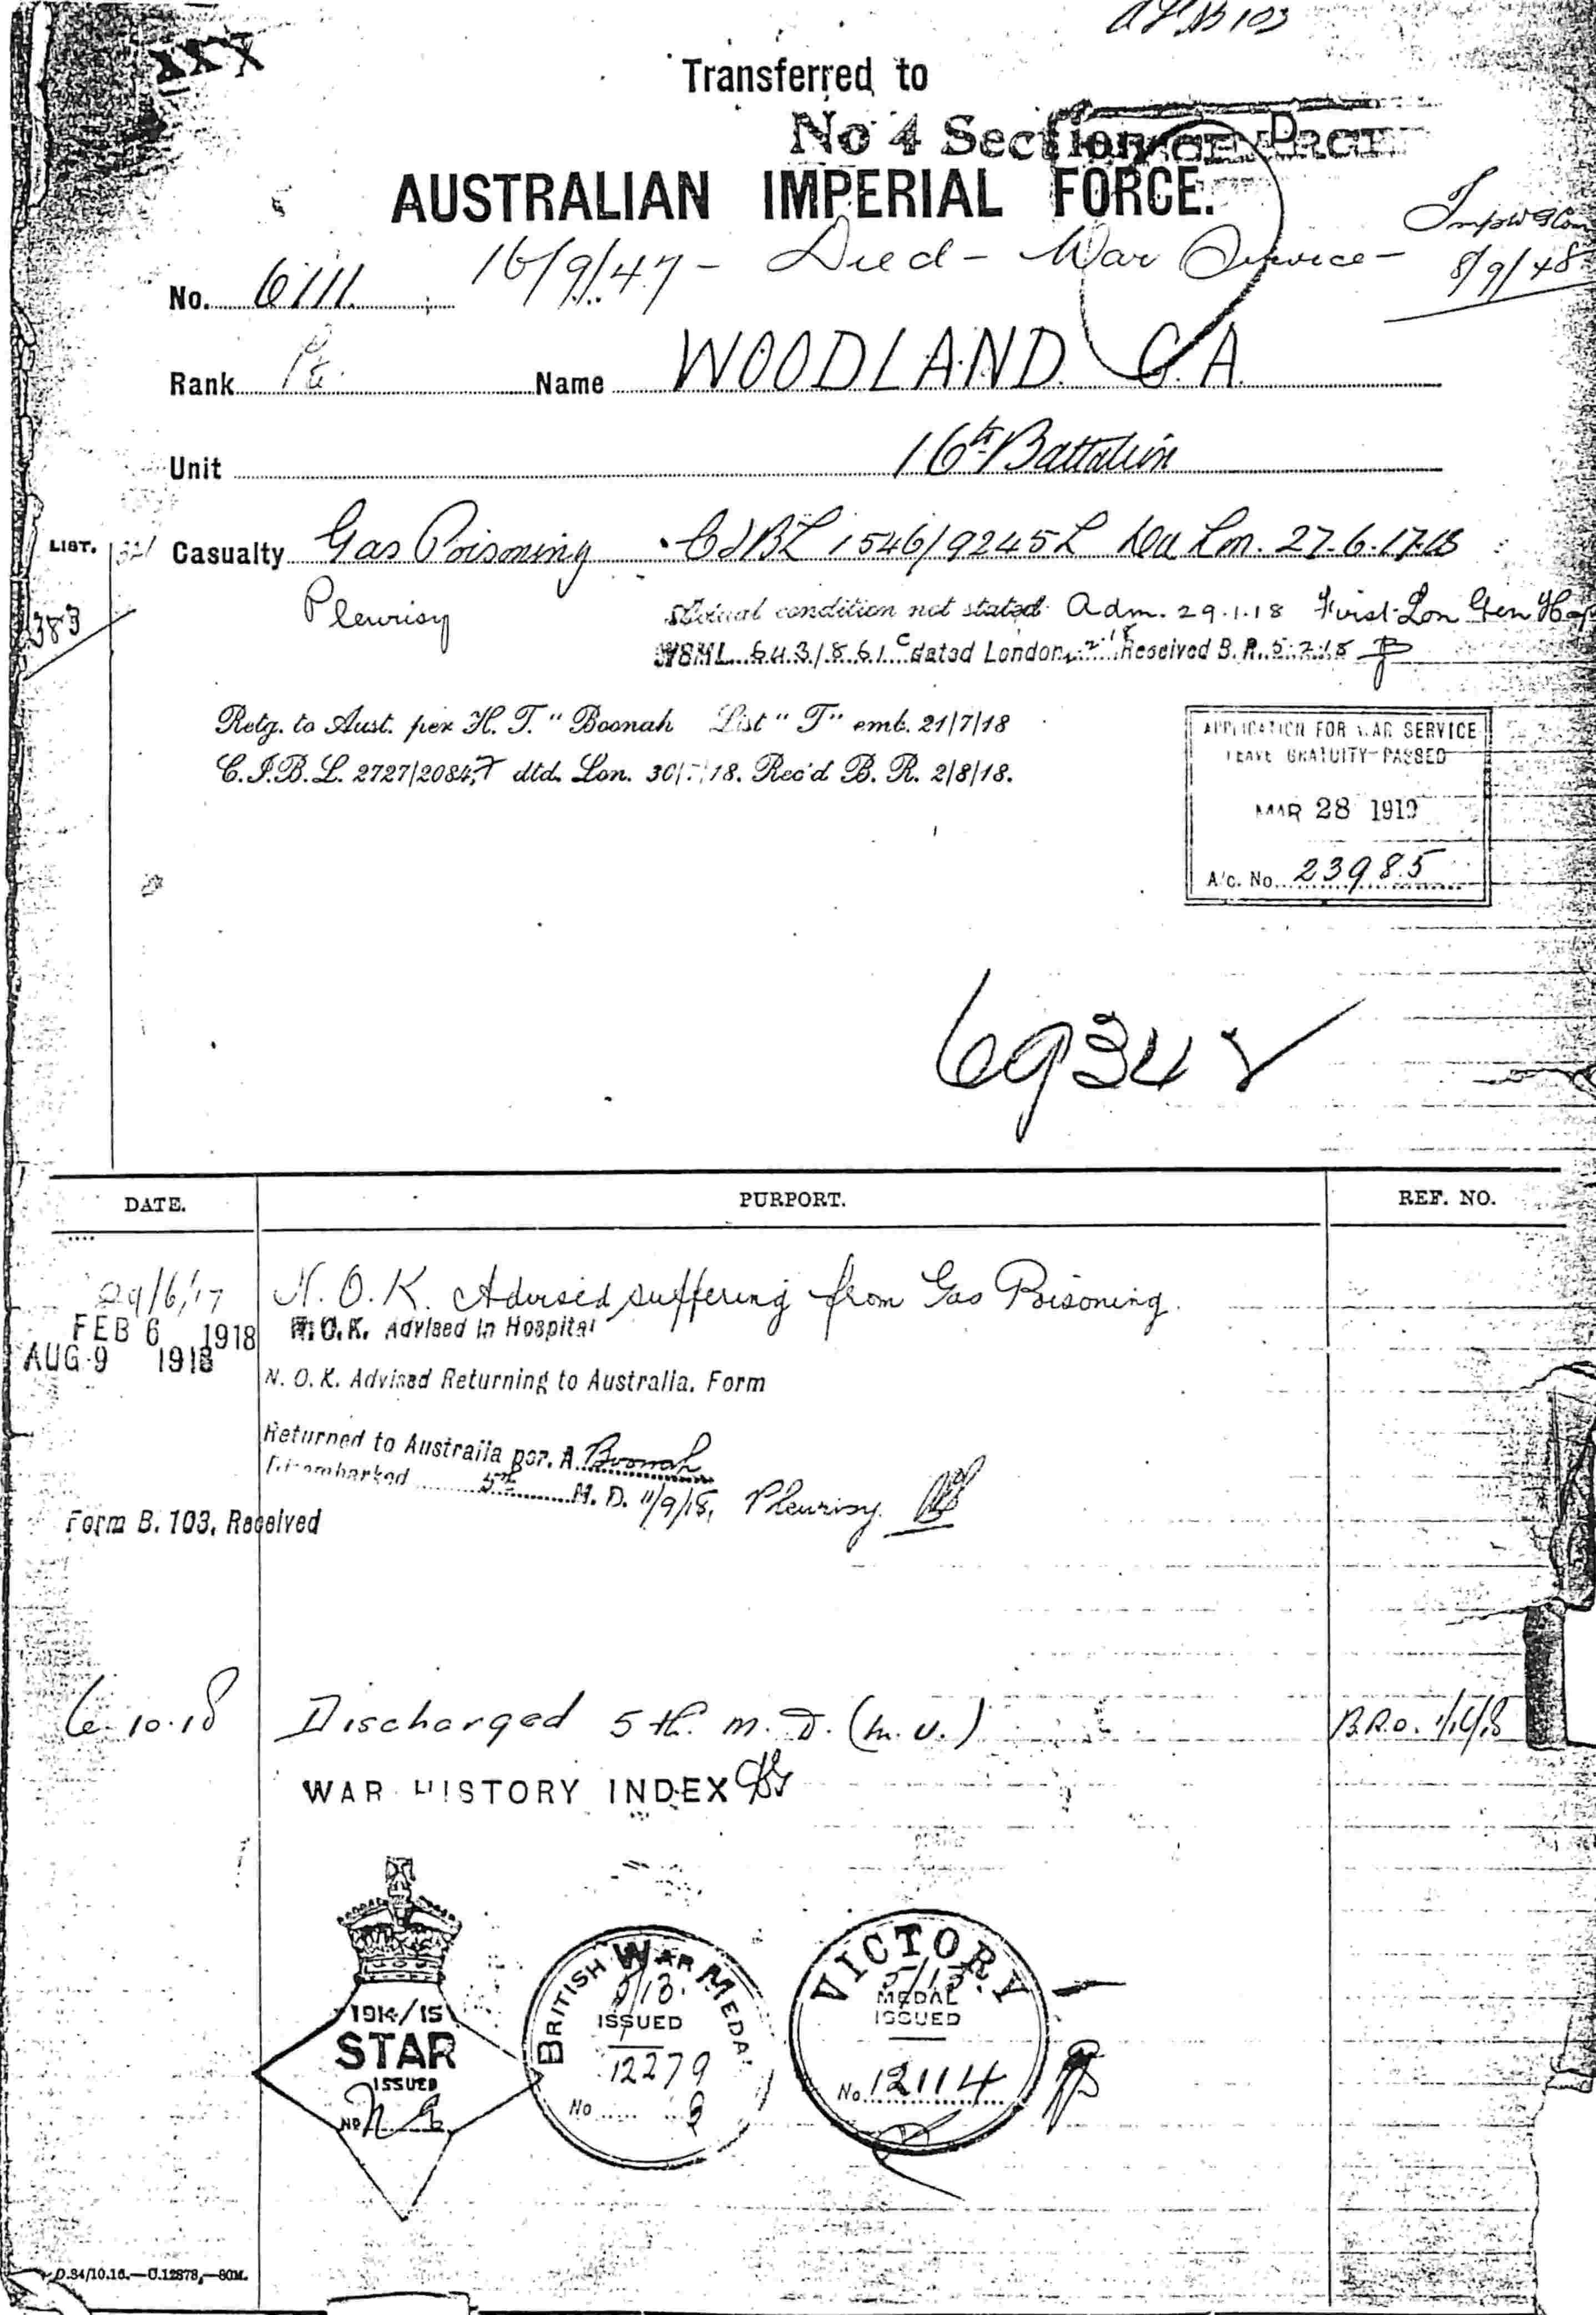 XXX
Transferred to
No 4 Section
AUSTRALIAN IMPERIAL FORCE.
16/9/47 - Died - War Service -
8/9/48
No. 6111.
Rank Pte. Name WOODLAND G.A.
Unit 16th Battalion
LIST. 321 Casualty Gas Poisoning C.I.B.L 1546/9245L Lon. 27.6.17
383
Pleurisy
Actual condition not stated Adm. 29.1.18 First Lon Gen Hosp
643/861 C dated London Received B. R. 5.2.18
Retg. to Aust. per H. T. "Boonah List "T" emb. 21/7/18
C.I.B.L. 2727/2084 dtd. Lon. 30/7/18. Rec'd B. R. 2/8/18.
APPLICATION FOR WAR SERVICE
LEAVE GRATUITY PASSED
MAR 28 1919
A/c. No. 23985
6934
DATE. PURPORT. REF. NO.
29/6/17 N. O. K. Advised suffering from Gas Poisoning.
FEB 6 1918 N. O. K. Advised in Hospital
AUG 9 1918
N. O. K. Advised Returning to Australia. Form
Returned to Australia per. A. Boonah
Disembarked 5th M. D. 11/9/18, Pleurisy.
Form B. 103, Received
6.10.18 Discharged 5th. M. D. (M. U.) B.R.O.
WAR HISTORY INDEX
1914/15
STAR
ISSUED
No
BRITISH WAR MEDAL
5/13.
ISSUED
12279
No
VICTORY
5/13.
MEDAL
ISSUED
No. 12114
D.84/10.16.—C.12878.—80M.